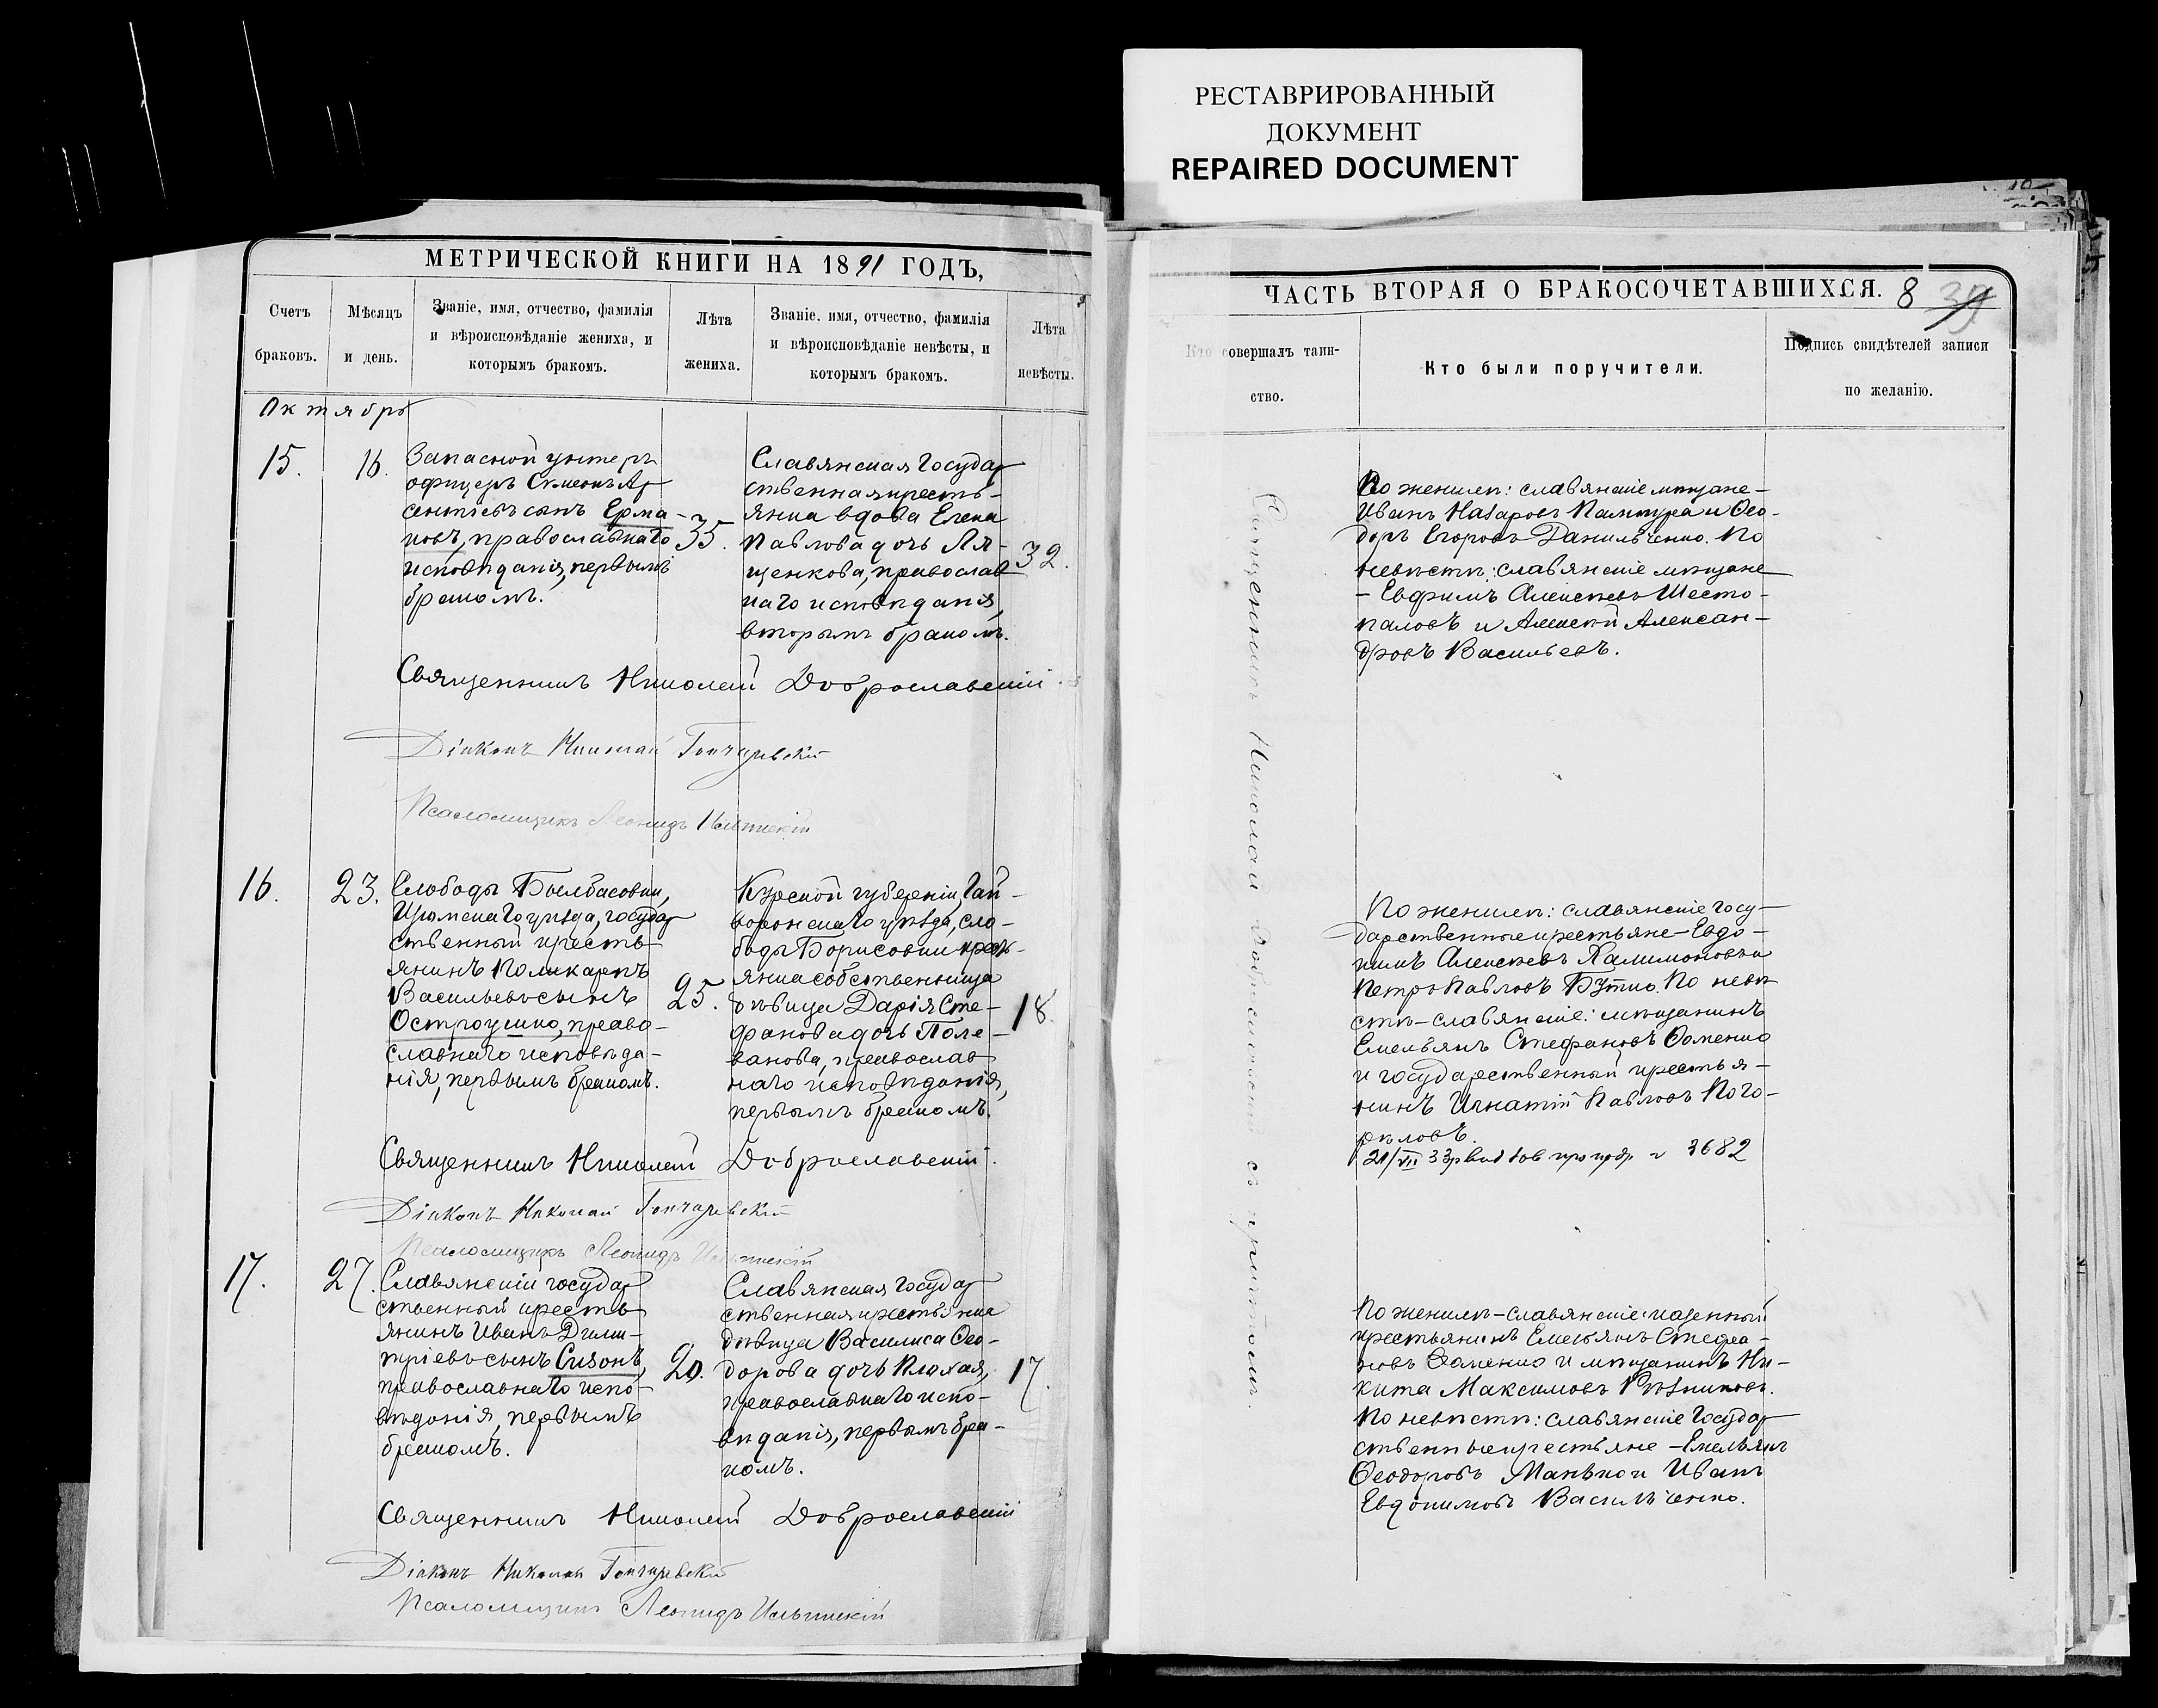 РЕСТАВРИРОВАННЫЙ
ДОКУМЕНТ
REPAIRED DOCUMENT
МЕТРИЧЕСКОЙ КНИГИ НА 1891 ГОДЪ,
Счетъ
браковъ.
Мѣсяцъ
и день.
Званіе, имя, отчество, фамилія
и вѣроисповѣданіе жениха, и
которымъ бракомъ.
Лѣта
жениха.
Званіе, имя, отчество, фамилія
и вѣроисповѣданіе невѣсты, и
которымъ бракомъ.
Лѣта
невѣсты.
Октябрь
15.
16.
Запасной унтеръ
офицеръ Симеонъ Ар
сентіевъ сынъ Ерма-
ковъ, православнаго
исповѣданія, первымъ
бракомъ.
35.
Славянская государ
ственная кресть-
янка вдова Елена
Павлова дочь Ля-
щенкова, православ
наго исповѣданія,
вторымъ бракомъ.
32.
Священникъ Николай Доброславскій.
Діаконъ Николай Гончаревскій
Псаломщикъ Леонидъ
16.
23.
Слободы Былбасовки,
Изюмскаго уѣзда, государ
ственный кресть
янинъ Поликарпъ
Васильевъ сынъ
Остроушко, право-
славнаго исповѣда-
нія, первымъ бракомъ.
25.
Курской губерніи, Гай-
воронскаго уѣзда, сло-
боды Борисовки кресть-
янка собственница
дѣвица Дарія Сте-
фанова дочь Поле-
ванова, православ
наго исповѣданія,
первымъ бракомъ.
18.
Священникъ Николай Доброславскій.
Діаконъ Николай Гончаревскій
Псаломщикъ Леонидъ
17.
27.
Славянскій государ
ственный кресть
янинъ Иванъ Дими-
тріевъ сынъ Сизонъ,
православнаго испо-
вѣданія, первымъ
бракомъ.
20.
Славянская государ
ственная крестьянка
дѣвица Василиса Ѳео-
дорова дочь Плахая,
православнаго испо-
вѣданія, первымъ бра-
комъ.
17.
Священникъ Николай Доброславскій
Діаконъ Николай Гончаревскій
Псаломщикъ Леонидъ
ЧАСТЬ ВТОРАЯ О БРАКОСОЧЕТАВШИХСЯ. 8
Кто совершалъ таин-
ство.
Кто были поручители.
Подпись свидѣтелей записи
по желанію.
Священникъ Николай Доброславскій съ причтомъ.
По женихѣ: славянскіе мѣщане-
Иванъ Назаровъ Памтура и Ѳео-
доръ Егоровъ Данильченко. По
невѣстѣ: славянскіе мѣщане
- Евфимъ Алексѣевъ Шесто-
паловъ и Алексѣй Алексан-
дровъ Васильевъ.
По женихѣ: славянскіе госу-
дарственные крестьяне-Евдо-
кимъ Алексѣевъ Халимоновъ и
Петръ Павловъ Бутко. По невѣ
стѣ-славянскіе: мѣщанинъ
Емельянъ Стефановъ Ѳоменко
и государственный крестья-
нинъ Игнатій Павловъ Пого-
рѣловъ.
21/VII 33р 3682
По женихѣ-славянскіе: казенный
крестьянинъ Емельянъ Стефа-
новъ Ѳоменко и мѣщанинъ Ни-
кита Максимовъ Рѣзниковъ.
По невѣстѣ: славянскіе государ
ственные крестьяне-Емельянъ
Ѳеодоровъ Манько и Иванъ
Евдокимовъ Васильченко.